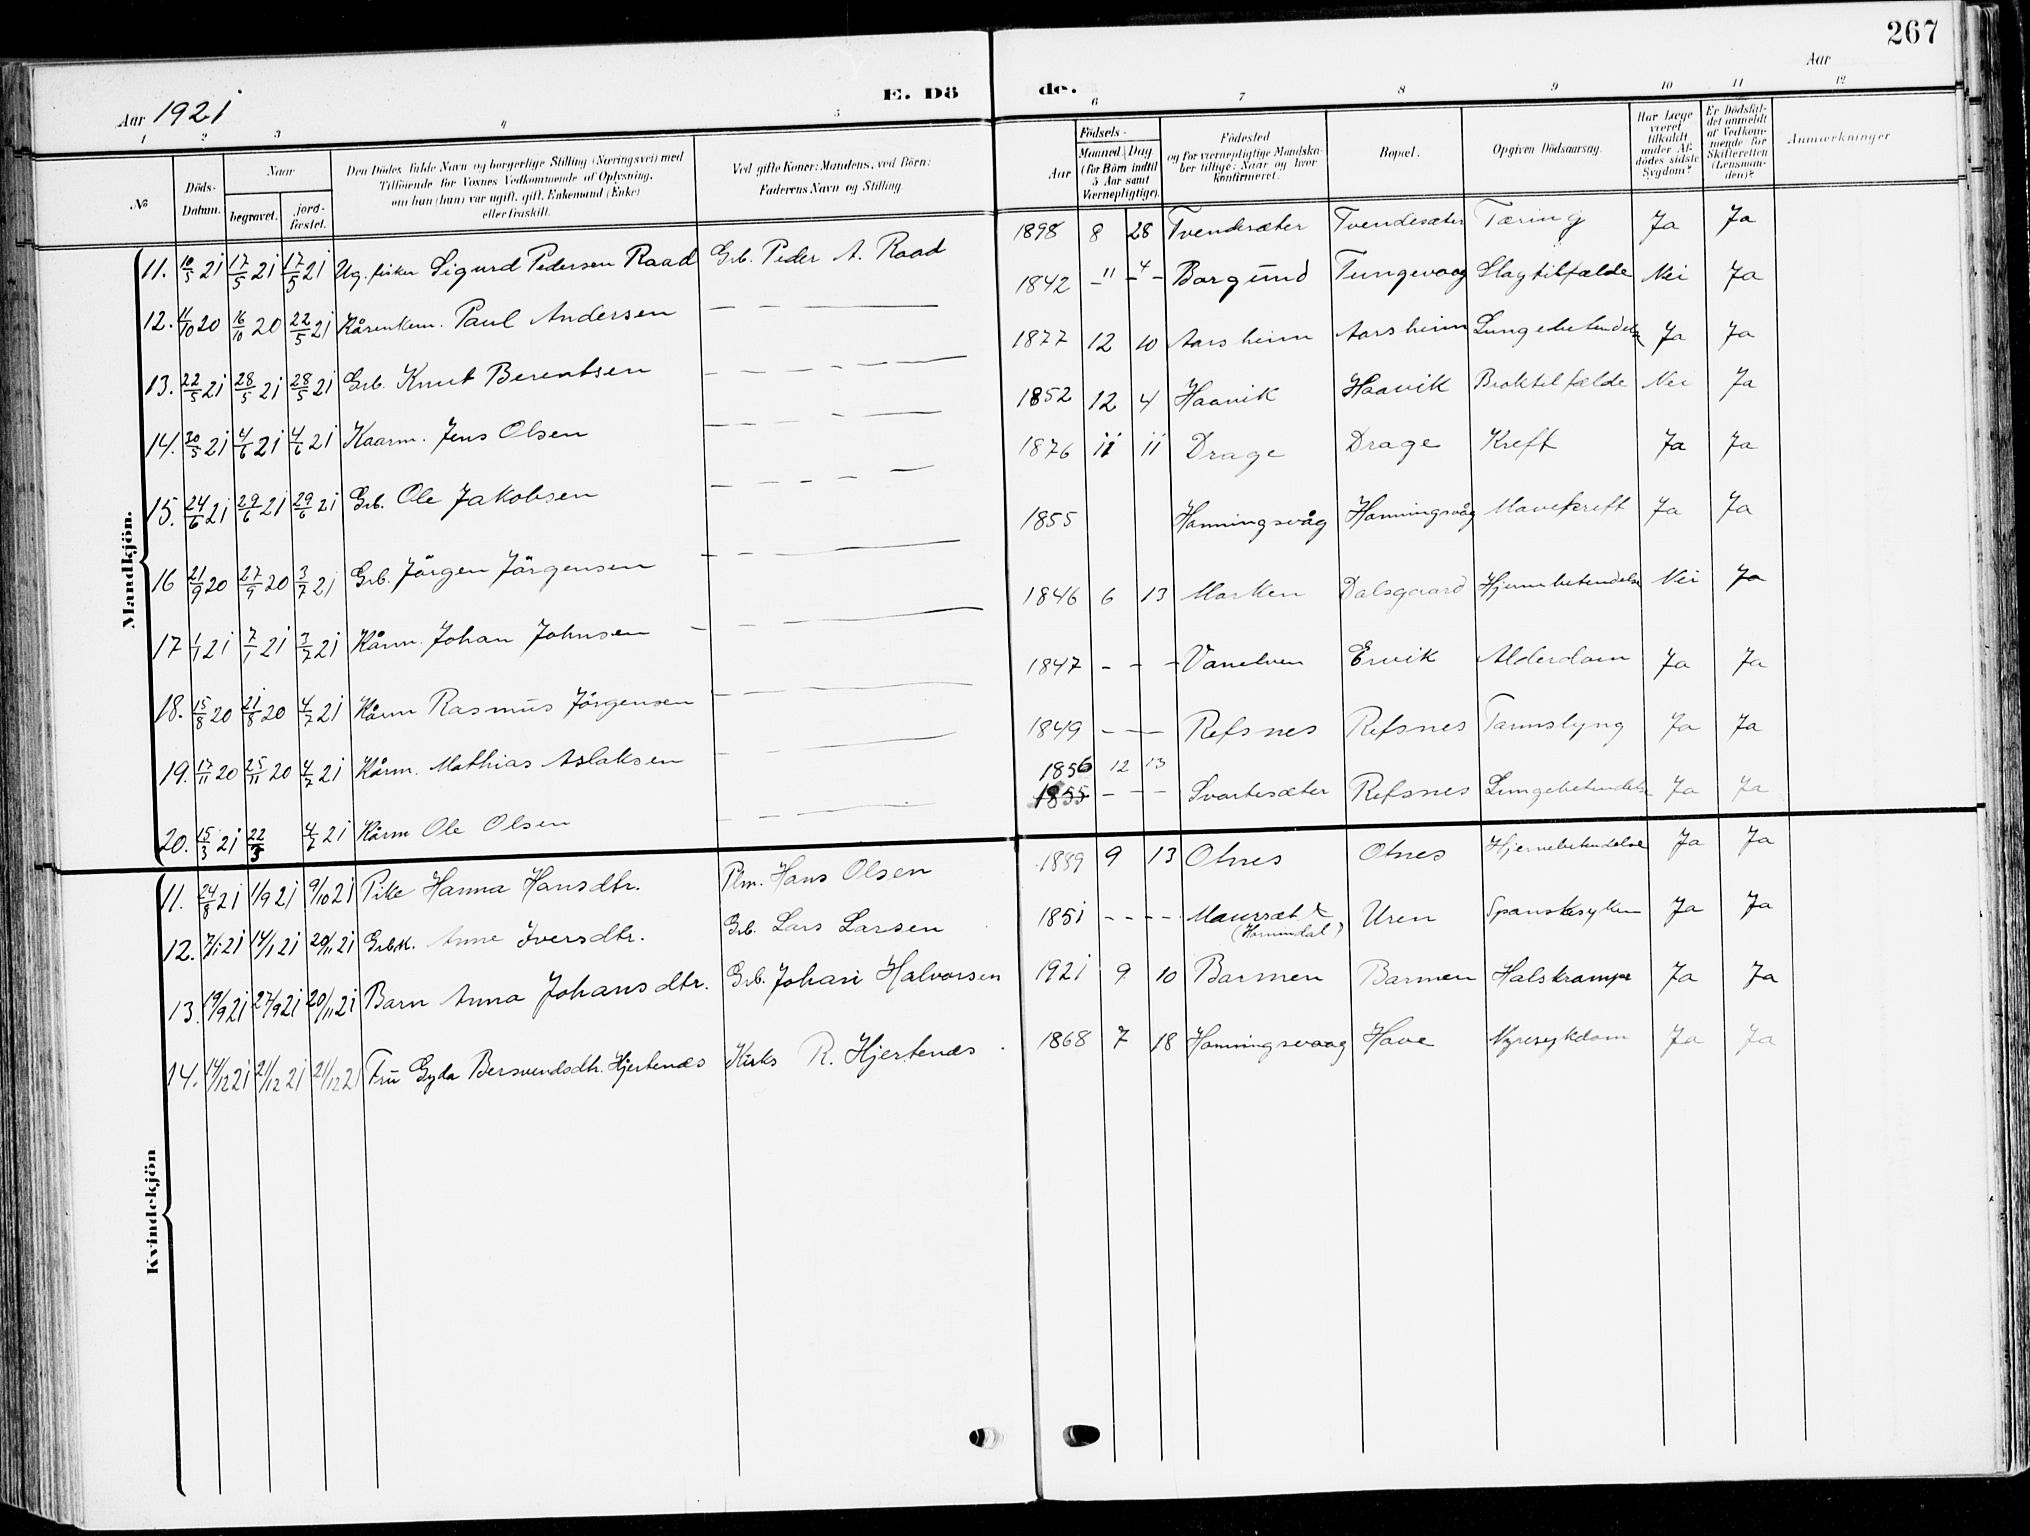 267
Aar 1921
E. Dö
de.
Aar
1 2 3 4 5 6 7 8 9 10 11 12
№
Döds-Datum.
Naar
begravet.
jord-fæstet.
Den Dödes fulde Navn og borgerlige Stilling (Næringsvei) med
Tilföiende for Voxnes Vedkommende af Oplysning,
om han (hun) var ugift, gift, Enkemand (Enke)
eller fraskilt.
Ved gifte Koner: Mandens, ved Börn:
Faderens Navn og Stilling.
Födsels-
Aar
Maaned. Dag
(for Börn indtil
5 Aar samt
Værnepligtige).
Födested
og for værnepligtige Mandska-
ber tillige: Naar og hvor
konfirmeret.
Bopæl.
Opgiven Dödsaarsag.
Har Læge
været
tilkaldt
under Af-
dödes sidste
Sygdom?
Er Dödsfal-
det anmeldt
af Vedkom-
mende for
Skifteretten
(Lensman-
den)?
Anmærkninger
Mandkjön.
11. 10/5 21 17/5 21 17/5 21 Ug. fisker Sigurd Pedersen Raad Grb. Peder A. Raad 1898 8 28 Tvendesæter Tvendesæter Tæring Ja Ja
12. 11/10 20 16/10 20 22/5 21 Kårenkem. Paul Andersen — — — 1842 - 11 - 4 - Borgund Tungevaag Slagtilfælde Nei Ja
13. 22/5 21 28/5 21 28/5 21 Grb. Knut Berentsen — — — 1877 12 10 Aarsheim Aarsheim Lungebetendelse Ja Ja
14. 30/5 21 4/6 21 4/6 21 Kaarm. Jens Olsen — — — 1852 12 4 Haavik Haavik Broktilfælde Nei Ja
15. 24/6 21 29/6 21 29/6 21 Grb. Ole Jakobsen — — — 1876 11 11 Drage Drage Kreft Ja Ja
16 21/9 20 27/9 20 3/7 21 Grb. Jörgen Jörgensen — — — 1855 Honningsvåg Honningsvåg Mavekreft Ja Ja
17 1/1 21 7/1 21 3/7 21 Kårm. Johan Johnsen — — — 1846 6 13 Morken Dalsgaard Hjernebetendelse Nei Ja
18. 15/8 20 21/8 20 4/7 21 Kårm Rasmus Jörgensen — — — 1847 - - - Vanelven Ervik Alderdom Ja Ja
19. 17/11 20 25/11 20 4/7 21 Kårm. Mathias Aslaksen — — — 1849 - - - Refsnes Refsnes Tarmslyng Ja Ja
1856 12 13
20. 15/3 21 22/3 4/7 21 Kårm Ole Olsen — — — 1855 - - - Svartesæter Refsnes Lungebetendelse Ja Ja
Kvindekjön
11. 24/8 21 1/9 21 9/10 21 Pike Hanna Hansdtr. Plm. Hans Olsen 1889 9 13 Otnes Otnes Hjernebetendelse Ja Ja
12. 7/1 21 14/1 21 20/11 21 Grbk. Anne Iversdtr. Grb. Lars Larsen 1851 - - - - Maursæt (Hornindal) Uren Spanskesyken Ja Ja
13. 19/9 21 27/9 21 20/11 21 Barn Anna Johansdtr. Grb. Johan Halvorsen 1921 9 10 Barmen Barmen Halskrampe Ja Ja
14. 14/12 21 21/12 21 21/12 21 Fru Gyda Bersvendsdtr. Hjertenæs Kirks R. Hjertenæs 1868 7 18 Honningsvaag Hove Nyresykdom Ja Ja